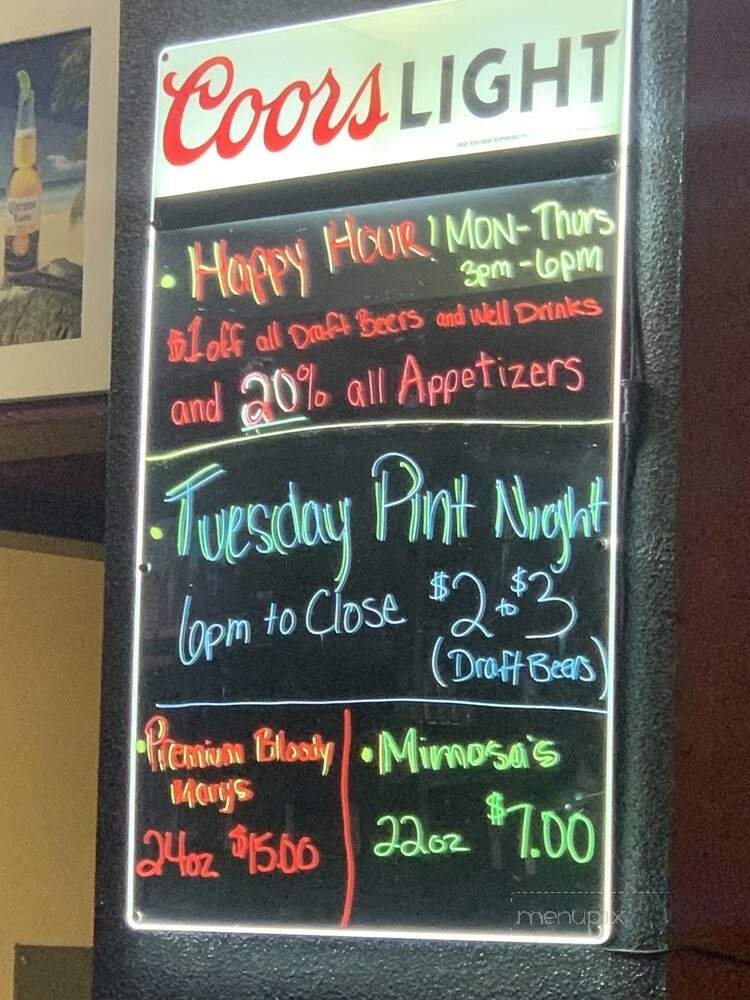 Coors LIGHT
• Happy Hour! MON-Thurs
3pm-6pm
$1 off all Draft Beers and Well Drinks
and 20% all Appetizers
• Tuesday Pint Night
6pm to Close $2 to $3
(Draft Beers)
• Premium Bloody
Mary's
24oz $15.00
• Mimosa's
22oz $7.00
menupix